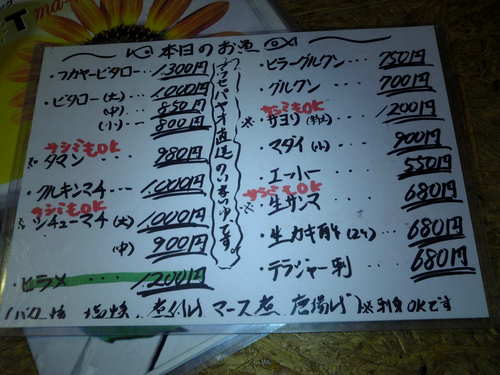 本日のお魚
・フカヤービタロー・・・1,300円
・ビタロー(大)・・・1,000円
(中)・・・850円
(小)ー800円
サシミもOK
※タマン・・・980円
・クルキンマチ・・・1,000円
サシミもOK
※シチューマチ(大) 1,000円
(中) 900円
・ヒラメ・・・・1,200円
・ヒラーグルクン・・・750円
・グルクン・・・700円
サシミもOK
※サヨリ 1,200円
・マダイ(小)・・900円
・エーバー・・・550円
サシミもOK
※生サンマ・・・680円
・生カキ(2ケ)・・680円
・テラジャー刺・・680円
(バター焼 塩焼 煮付け マース煮 唐揚げ)※刺身OKです